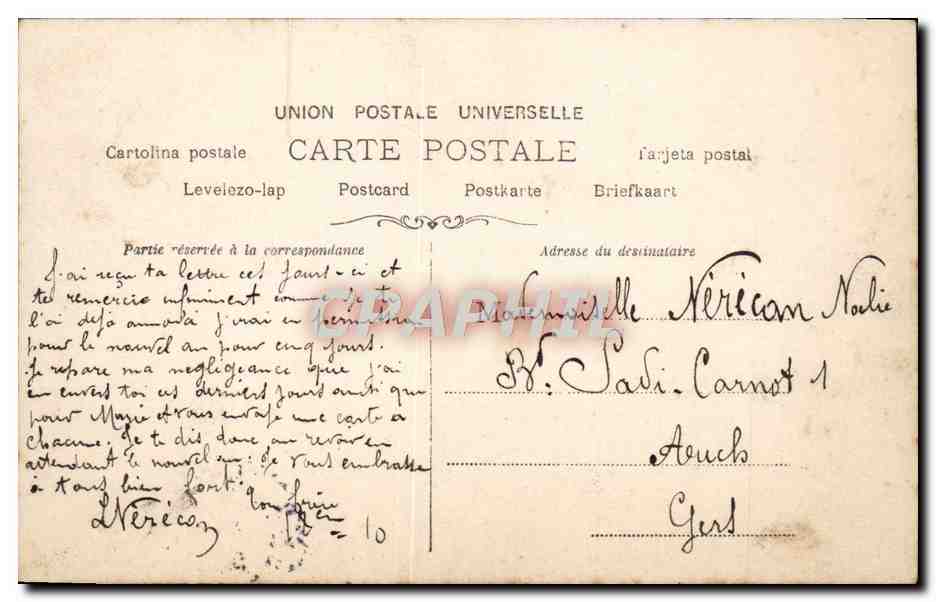 UNION POSTALE UNIVERSELLE
CARTE POSTALE
Cartolina postale
Tarjeta postal
Levelezo-lap
Postcard
Postkarte
Briefkaart
Partie réservée à la correspondance
Adresse du destinataire
J'ai reçu ta lettre ces jours-ci et
te remercie infiniment comme je te
l'ai déjà J'irai en permission
pour le nouvel an pour cinq jours.
Je repare ma negligeance que j'ai
eu envers toi ces derniers jours ainsi que
pour Marie et vous envoye une carte a
chacune. Je te dis donc au revoir en
attendant le nouvel an. Je vous embrasse
à tous bien fort. Ton frère
L Nérécan
10
Mademoiselle Nérécan Noélie
Bd. Sadi-Carnot 1
Auch
Gers
CARAPHIL